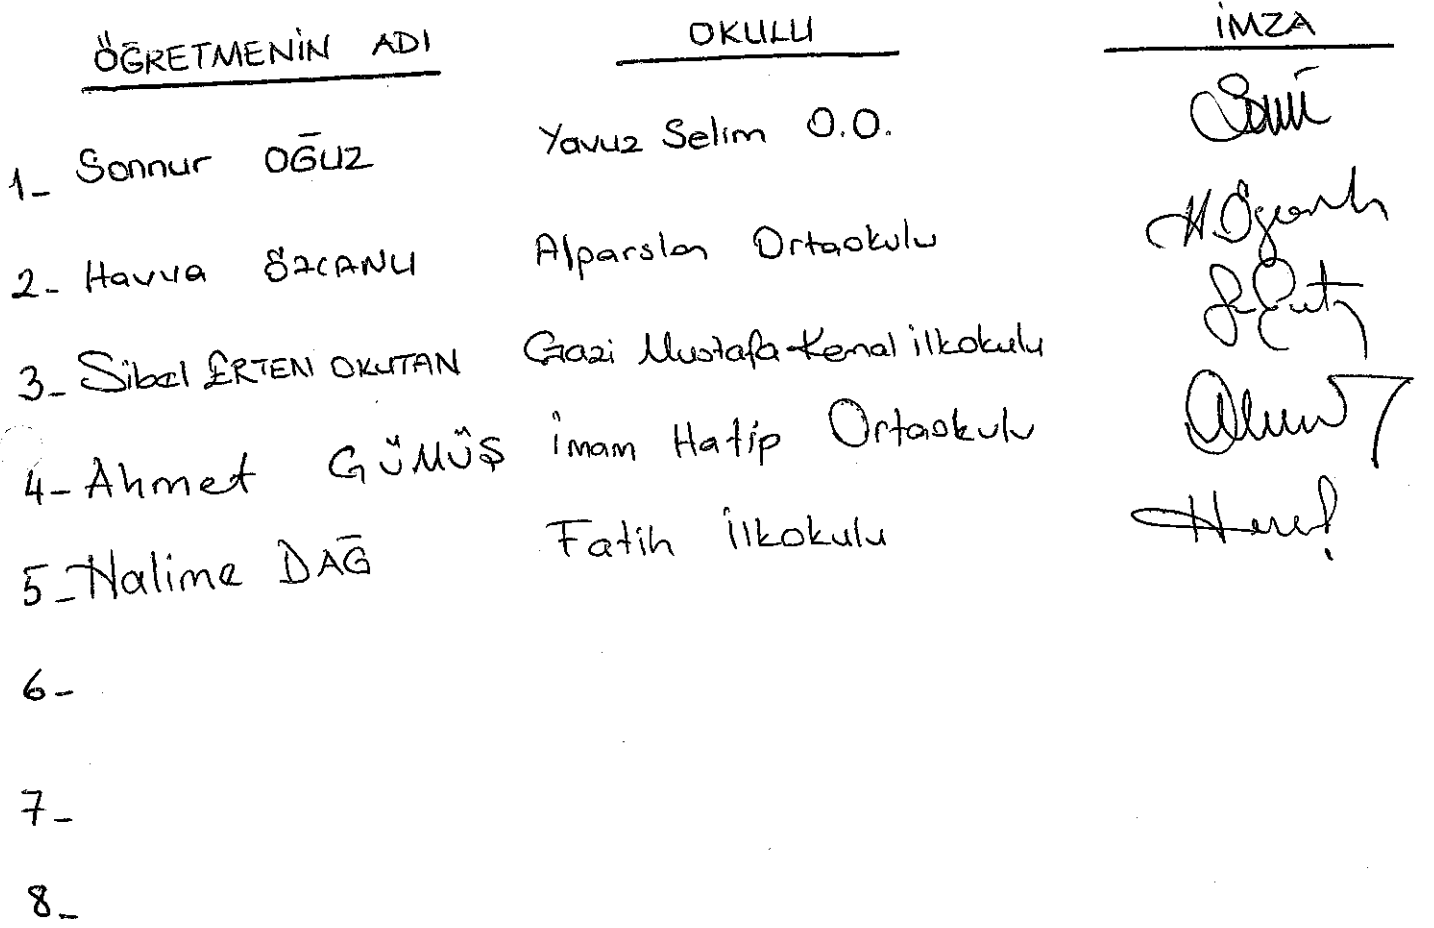 ÖĞRETMENİN ADI OKULU İMZA
1- Sonnur OĞUZ Yavuz Selim O.O.
2- Havva ÖZCANLI Alparslan Ortaokulu H.Özcanlı
3- Sibel ERTEN OKUTAN Gazi Mustafa Kemal ilkokulu
4- Ahmet GÜMÜŞ İmam Hatip Ortaokulu
5- Halime DAĞ Fatih İlkokulu
6-
7-
8-